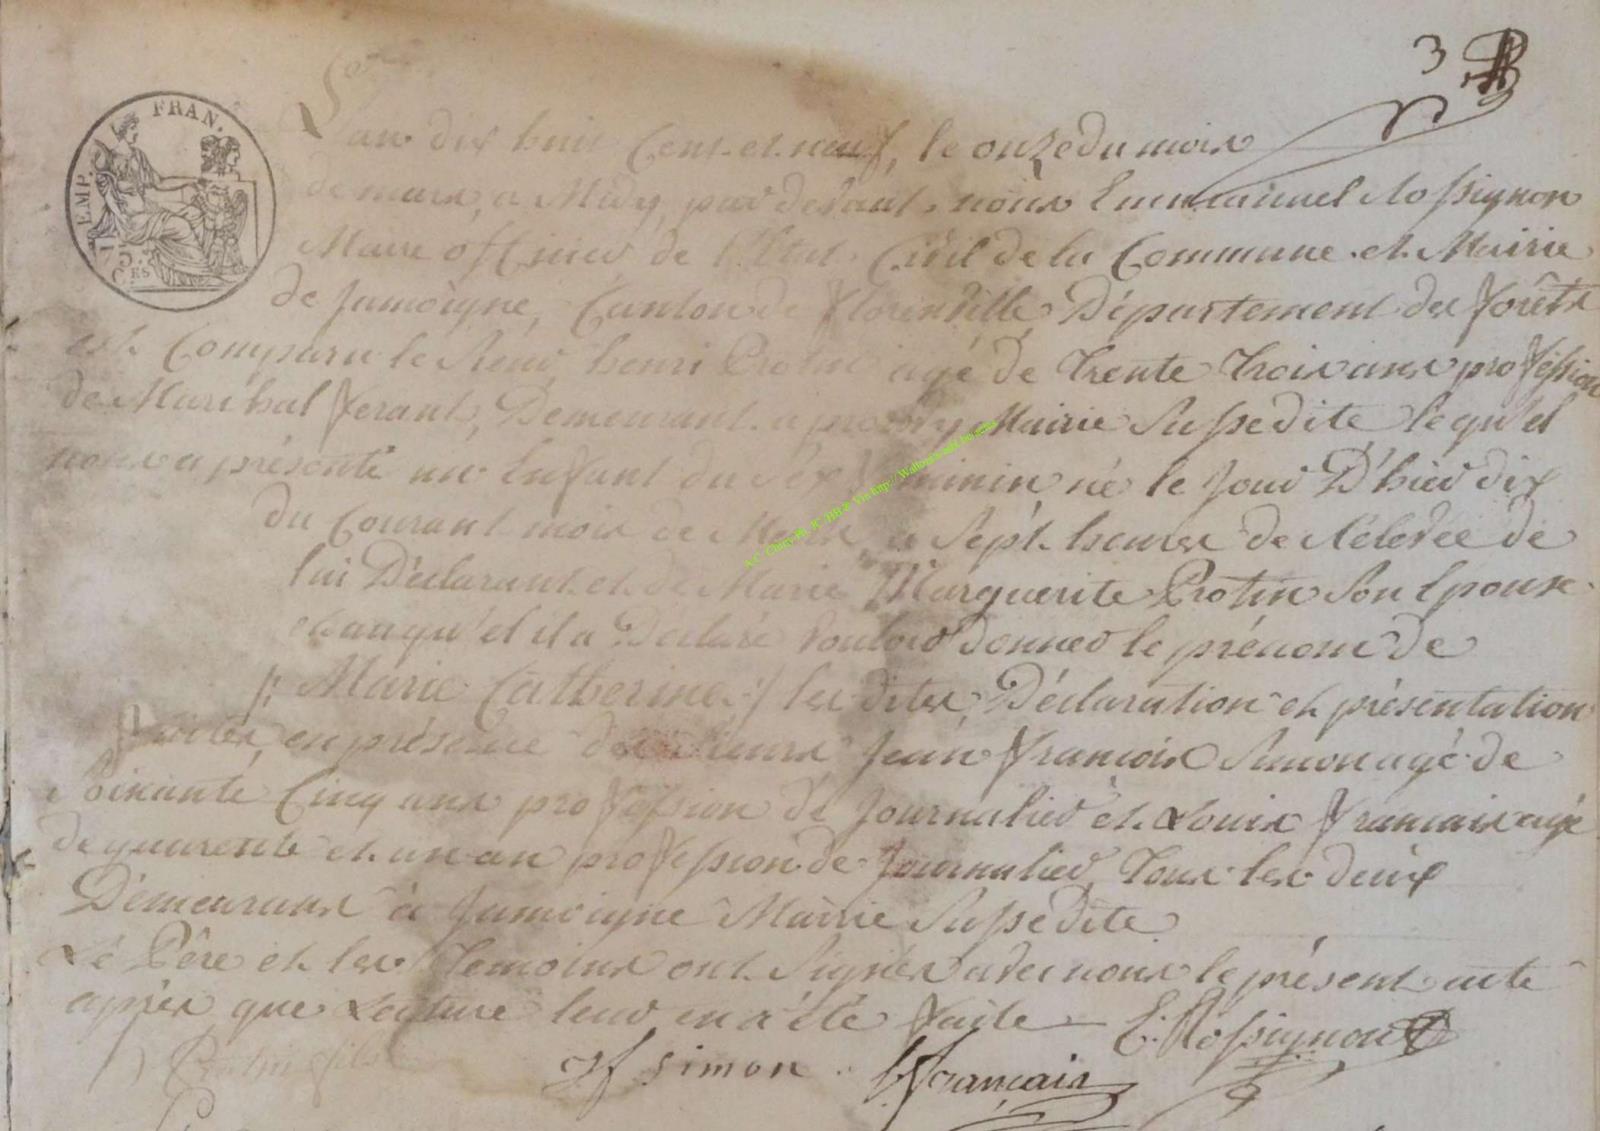 3
EMP. FRAN.
75
CES
L'an dix huit Cent et neuf, le onze du mois
de mars, a Midy, par devant nous Emmanuel Rossignon
Maire officier de l'Etat Civil de la Commune et Mairie
de Jamoigne, Canton de Florenville, Département des forêts
est Comparu le Sieur henri Protin agé de trente trois ans profession
de Maréchal ferant, Demeurant a prouvy Mairie Susdite lequel
nous a présenté un Enfant du Sèxe feminin né le Jour D'hier dix
du Courant mois de Mars a Sept heures de Relevée de
lui Déclarant et de Marie Marguerite Protin Son Epouse
et auquel il a Déclaré vouloir donner le prénom de
/: Marie Catherine :/ les dites Déclaration et présentation
faites en présence des Sieurs Jean François Simon agé de
Soixante Cinq ans profession de Journalier et Louis François agé
de quarente et un an profession de Journalier, tous les deux
Démeurans à Jamoigne Mairie Susdite
Le Père et les Temoins ont Signés avec nous le présent acte
après que Lecture leur en a été faite E. Rossignon
Protin fils jf simon . l. françois